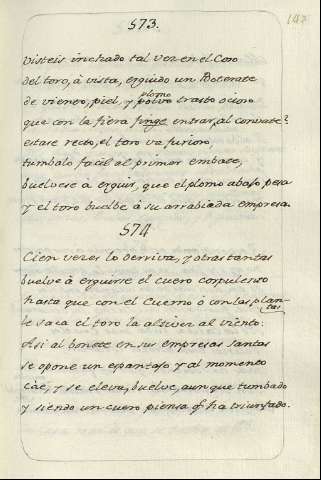 573.
147
Visteis inchado tal vez en el Coso
del toro, à vista, erguido un Botarate
de viento, piel, y polvo trasto ocioso
plomo
que con la fiera finge entrar, al convate?
estase recto, el toro va furioso,
tumbalo facil al primer embate,
buelvese à erguir, que el plomo abajo pesa
y el toro buelbe à su arrabiada empresa.
574
Cien vezes lo derriva, y otras tantas
buelve à erguirse el cuero corpulento
hasta que con el Cuerno ò con las plan-
tas
le saca el toro la altivez al viento.
Asi al bonete en sus empresas santas
se opone un espantajo y al momento
càe, y se eleva, buelve, aunque tumbado
y siendo un cuero piensa q̃ ha triunfado.